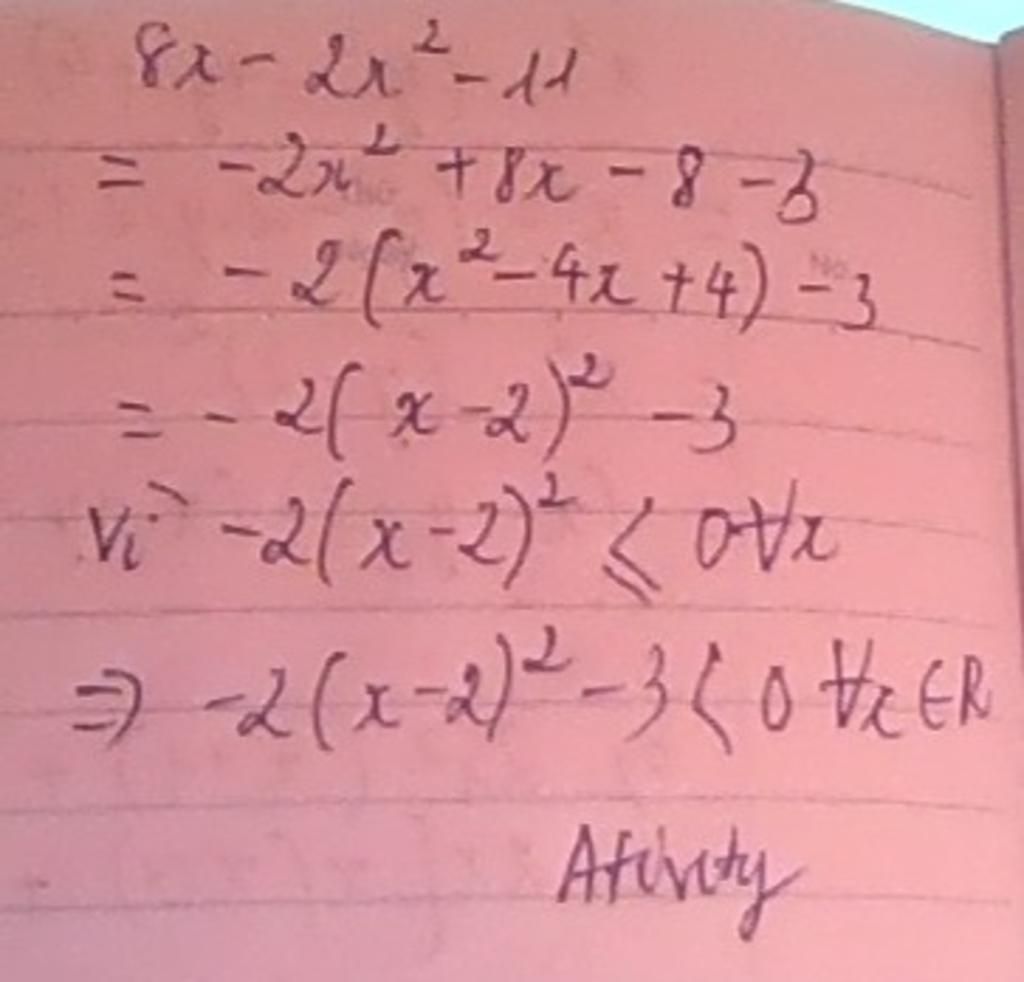 8x - 2x² - 11
= -2x² + 8x - 8 - 3
= -2(x² - 4x + 4) - 3
= -2(x - 2)² - 3
Vì -2(x - 2)² ≤ 0 ∀x
⇒ -2(x - 2)² - 3 < 0 ∀x ∈ R